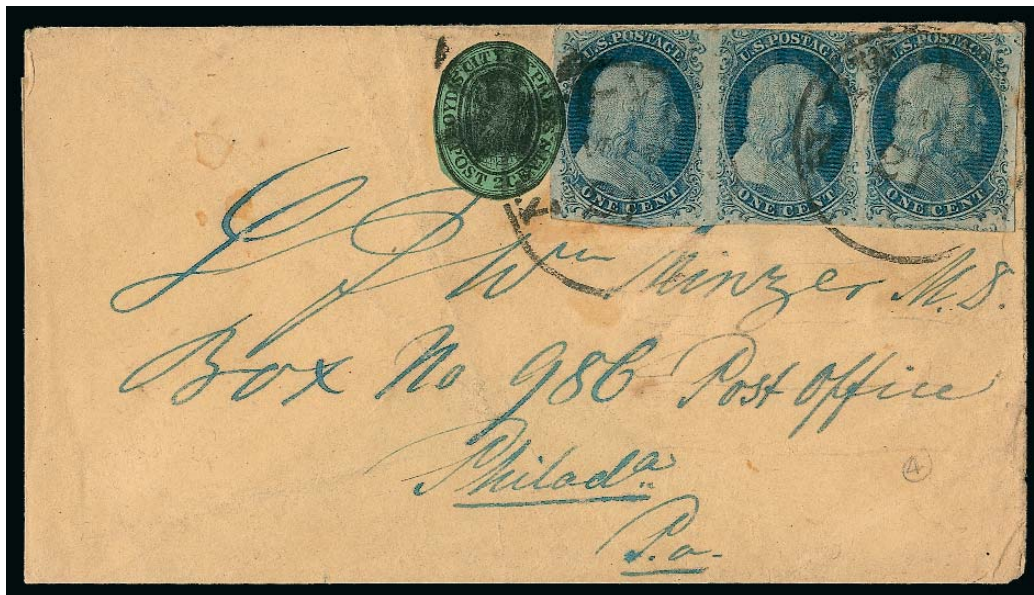 BOYD'S CITY EXPRESS
POST 2 CENTS
U.S. POSTAGE U.S. POSTAGE U.S. POSTAGE
ONE CENT ONE CENT ONE CENT
Wm Minzer M.D.
Box No 986 Post Office
Philada
Pa.
4